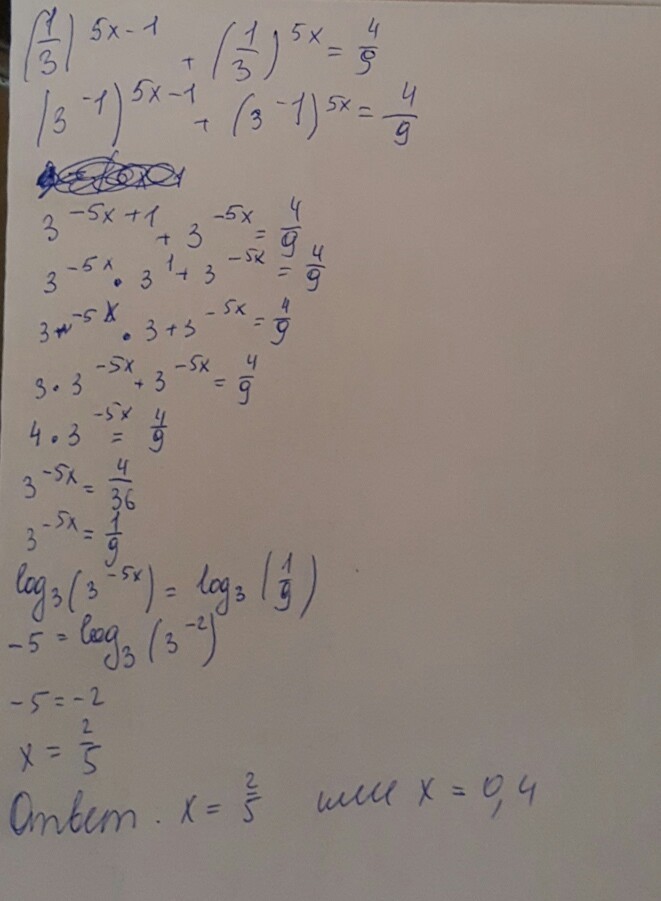 (1/3)^(5x-1) + (1/3)^(5x) = 4/9
(3^(-1))^(5x-1) + (3^(-1))^(5x) = 4/9
3^(-5x+1) + 3^(-5x) = 4/9
3^(-5x) · 3^1 + 3^(-5x) = 4/9
3^(-5x) · 3 + 3^(-5x) = 4/9
3 · 3^(-5x) + 3^(-5x) = 4/9
4 · 3^(-5x) = 4/9
3^(-5x) = 4/36
3^(-5x) = 1/9
log₃(3^(-5x)) = log₃(1/9)
-5 = log₃(3^(-2))
-5 = -2
x = 2/5
Ответ. x = 2/5 или x = 0,4